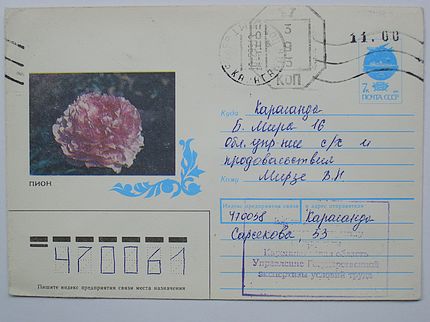 11.00
3
9
3
КОП
7к
ПОЧТА СССР
Куда Караганда
Б. Мира 16
Обл. упр-ние с/х и
продовольствия
Кому Мирзе В.И
ПИОН
Индекс предприятия связи и адрес отправителя
470058 Караганда
Сарсекова, 53
область
Управление Государственной
экспертизы условий труда
470061
Пишите индекс предприятия связи места назначения